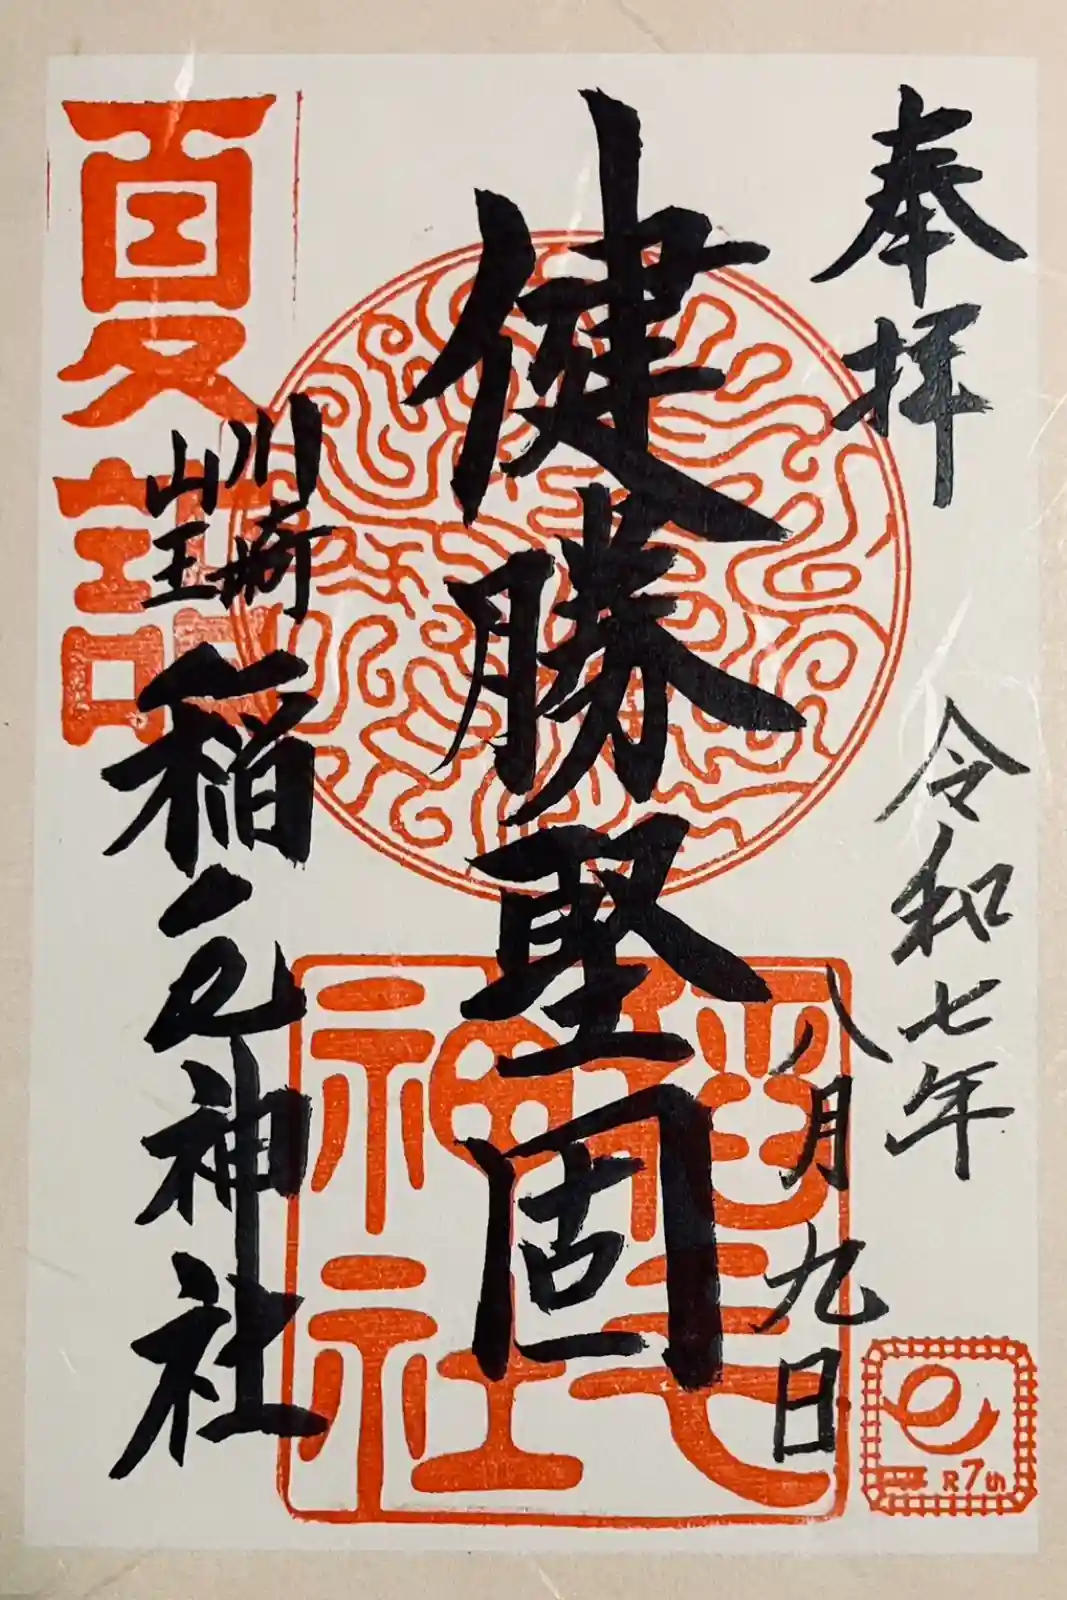 奉拝
令和七年
八月九日
健勝堅固
川崎
山王
稲毛神社
夏詣
稲毛
神社
R7